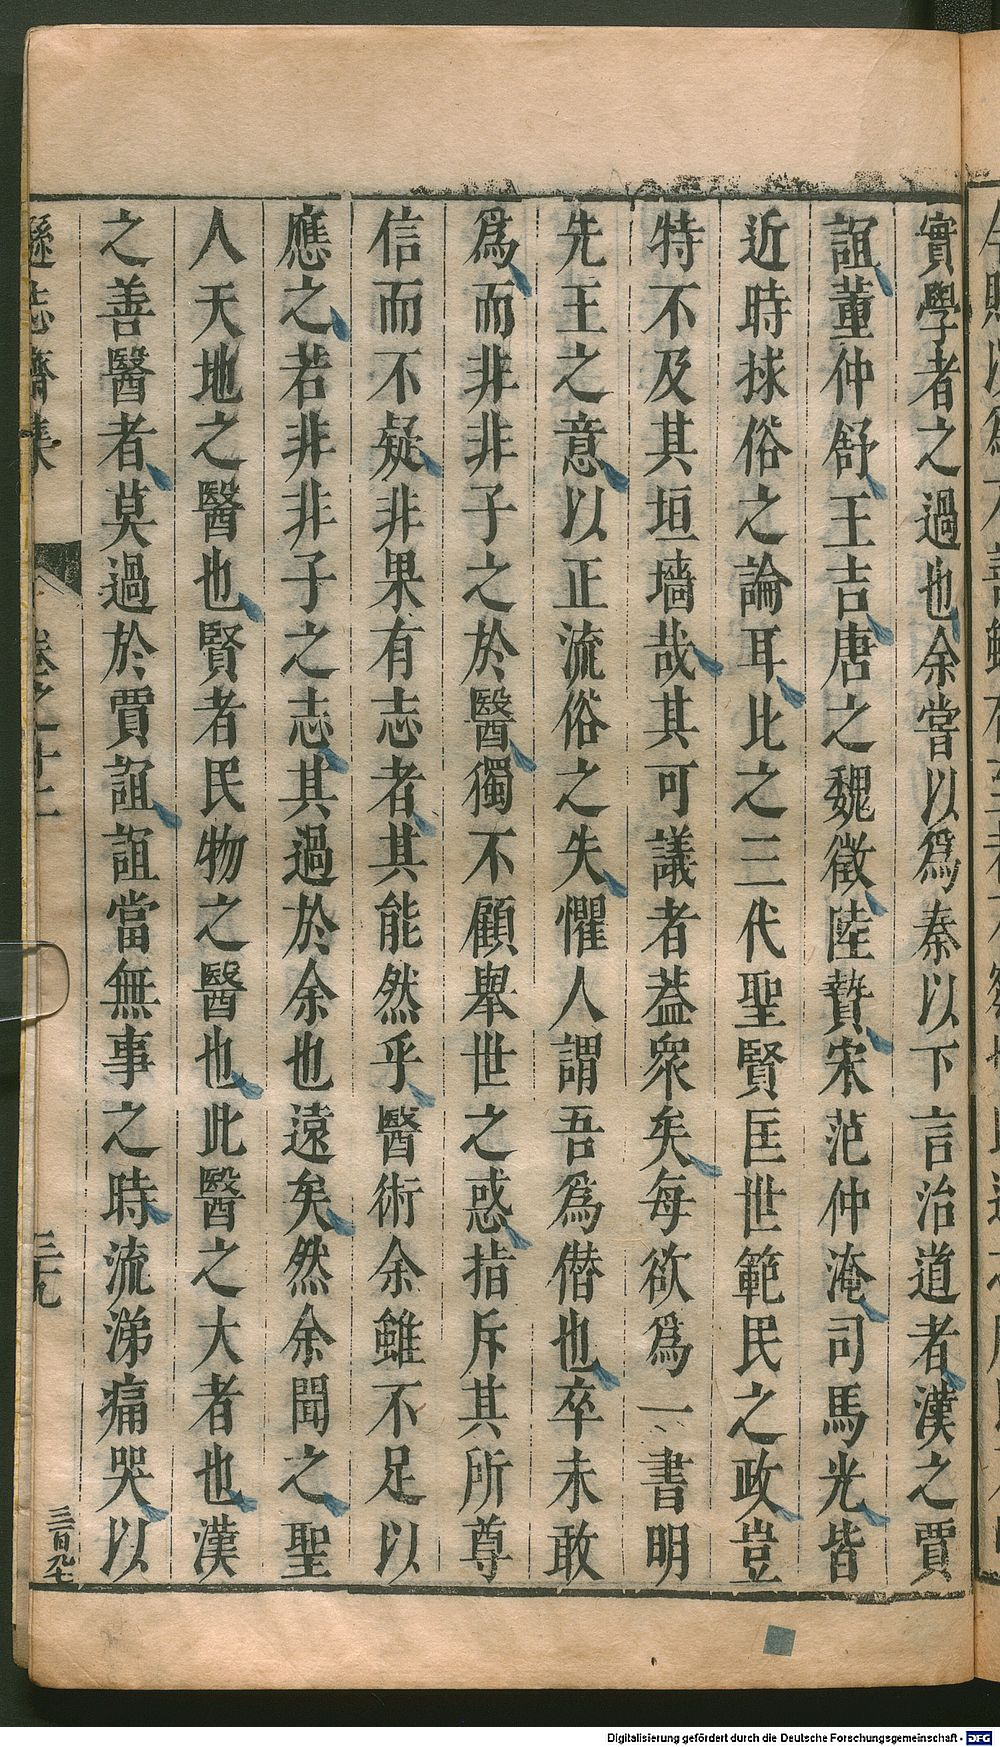 實學者之過也余嘗以爲秦以下言治道者漢之賈
誼董仲舒王吉唐之魏徵陸贄宋范仲淹司馬光皆
近時捄俗之論耳比之三代聖賢匡世範民之政豈
特不及其垣墻哉其可議者葢衆矣每欲爲一書明
先王之意以正流俗之失懼人謂吾爲僣也卒未敢
爲而非非子之於醫獨不顧舉世之惑指斥其所尊
信而不疑非果有志者其能然乎醫術余雖不足以
應之若非非子之志其過於余也遠矣然余聞之聖
人天地之醫也賢者民物之醫也此醫之大者也漢
之善醫者莫過於賈誼誼當無事之時流涕痛哭以
遜志齋集
卷之十二
三十九
三百九七
Digitalisierung gefördert durch die Deutsche Forschungsgemeinschaft - DFG